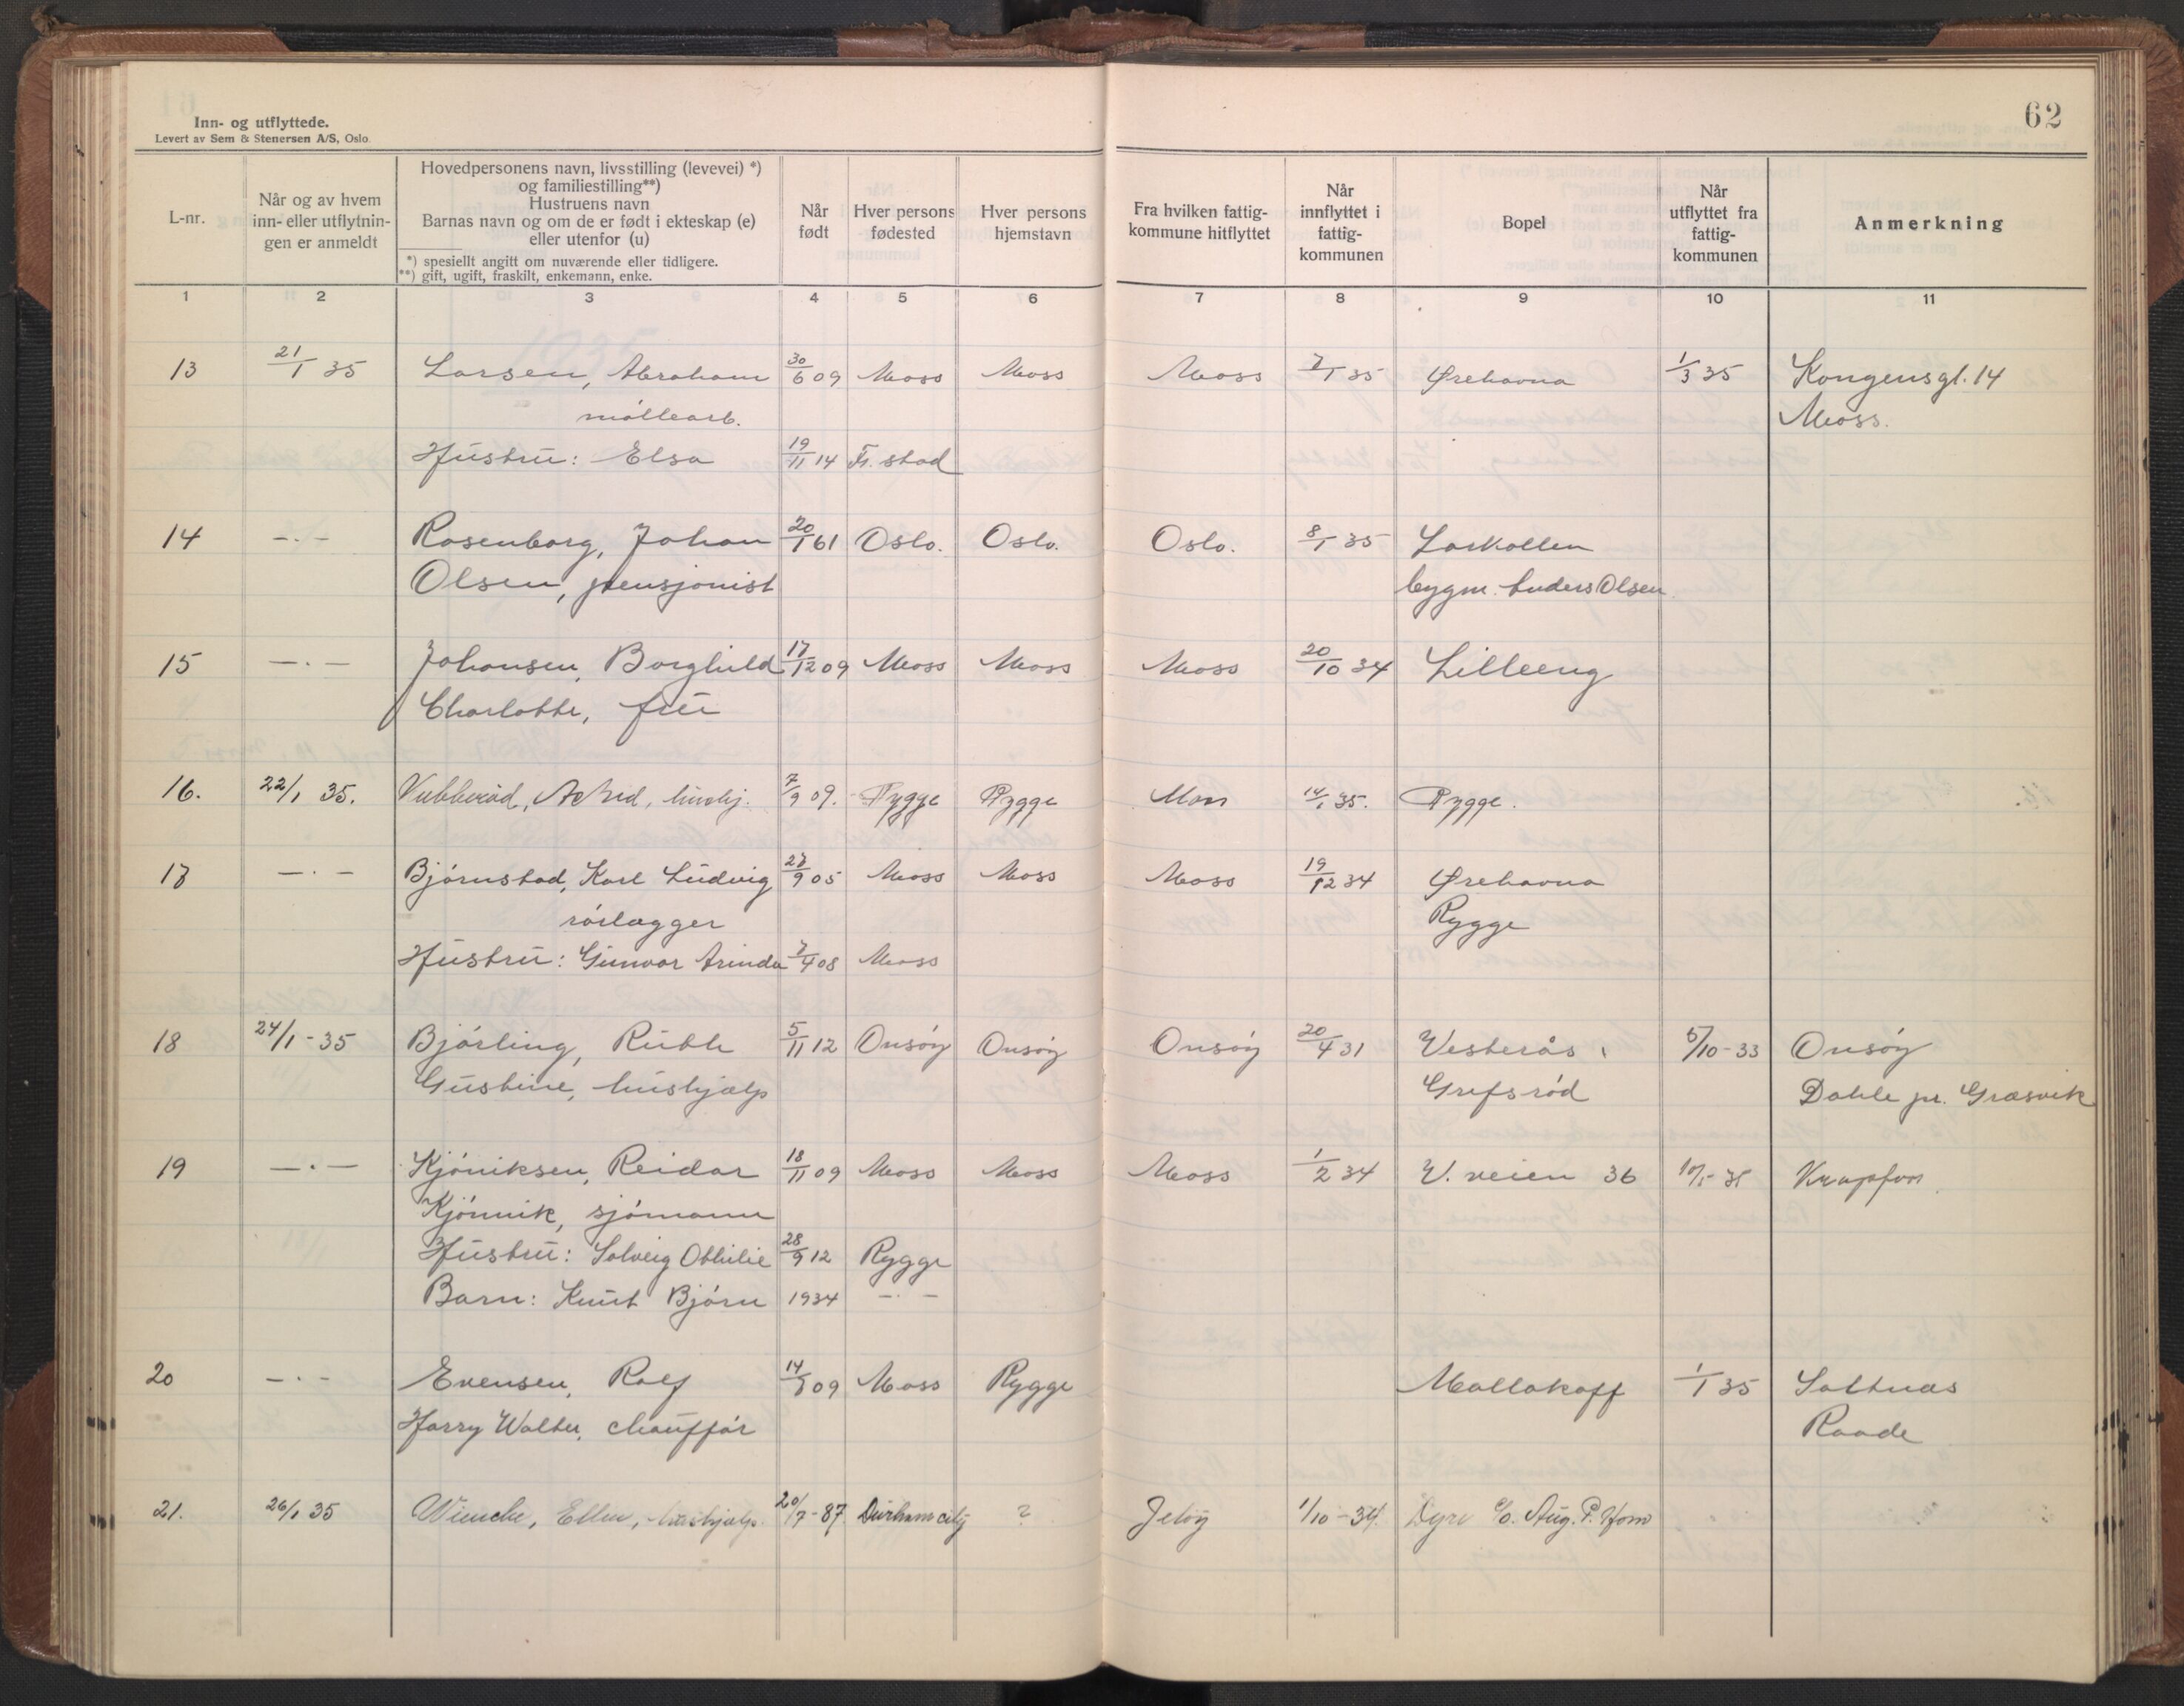 62
Inn- og utflyttede.
Levert av Sem & Stenersen A/S, Oslo.
L-nr.
Når og av hvem
inn- eller utflytnin-
gen er anmeldt
Hovedpersonens navn, livsstilling (levevei) *)
og familiestilling**)
Hustruens navn
Barnas navn og om de er født i ekteskap (e)
eller utenfor (u)
*) spesiellt angitt om nuværende eller tidligere.
**) gift, ugift, fraskilt, enkemann, enke.
Når
født
Hver persons
fødested
Hver persons
hjemstavn
Fra hvilken fattig-
kommune hitflyttet
Når
innflyttet i
fattig-
kommunen
Bopel
Når
utflyttet fra
fattig-
kommunen
Anmerkning
1 2 3 4 5 6 7 8 9 10 11
13 21/1 35 Larsen, Abraham 30/6 09 Moss Moss Moss 7/1 35 Ørehavna 1/3 35 Kongensgt. 14
møllearb. Moss.
Hustru: Elsa 19/11 14 Fr. stad
14 -.- Rosenborg, Johan 20/1 61 Oslo. Oslo. Oslo. 8/1 35 Larkollen
Olsen, pensjonist bygm. Anders Olsen
15 -.- Johansen, Borghild 17/12 09 Moss Moss Moss 20/10 34 Lilleeng
Charlotte, frü
16. 22/1 35. Astrid, 7/9 09. Rygge Rygge Moss 14/1 35. Rygge.
17 -.- Bjørnstad, Karl Ludvig 27/9 05 Moss Moss Moss 19/12 34 Ørehavna
rørlægger Rygge
Hustru: Gunvor Arinda 7/4 08 Moss
18 24/1-35 Bjørling, Ruth 5/11 12 Onsøy Onsøy Onsøy 20/4 31 Vesterås 5/10-33 Onsøy
Gustine, hushjælp Grefsrød Dahle pr. Græsvik
19 -.- Kjøniksen, Reidar 18/11 09 Moss Moss Moss 1/2 34 V. veien 36 Krapfoss
Kjønnik, sjømann
Hustru: Solveig Othilie 28/9 12 Rygge
Barn: Knut Bjørn 1934 -.-
20 -.- Evensen, Rolf 09 Moss Rygge Mallakoff 1/1 35 Saltnæs
Harry Walter, chauffør Raade
21. 26/1 35 Wiencke, Ellen, hushjælp. 20/7-87 Durham city ? Jeløy 1/10-34. Dyre c/o. Aug. P.